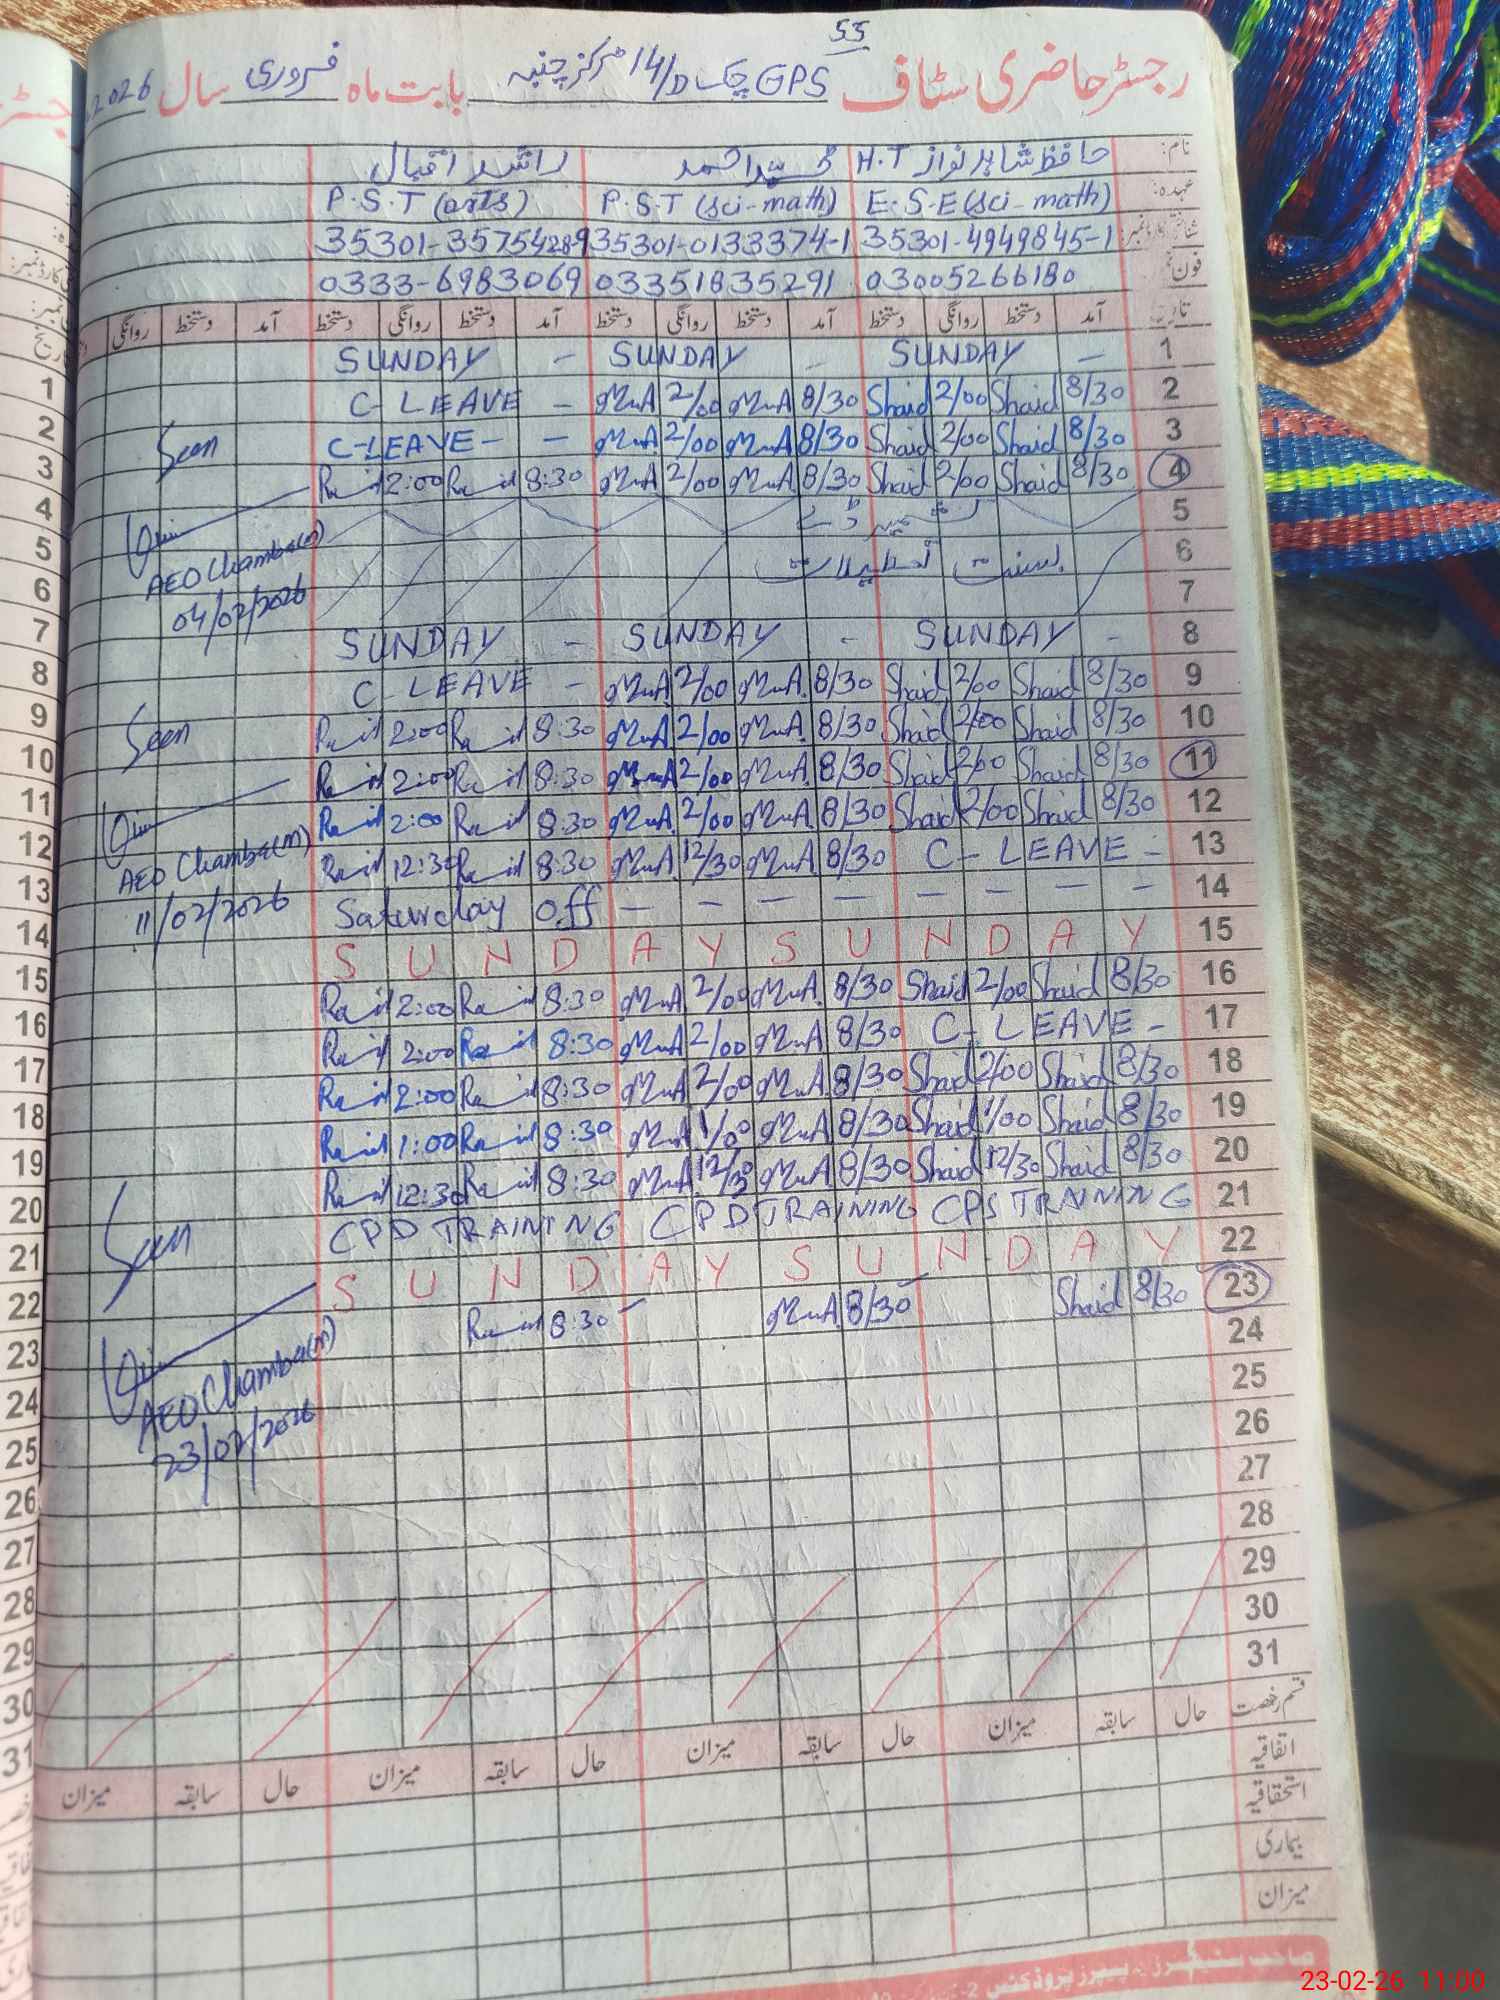 55
رجسٹر حاضری سٹاف GPS چک 14/D مرکز چنبہ بابت ماہ فروری سال 2026
نام: حافظ شاہد نواز H.T احمد راشد اقبال
عہدہ: E.S.E (sci-math) P.S.T (sci-math) P.S.T (arts)
شناختی کارڈ نمبر: 35301-4949845-1 35301-0133374-1 35301-3575428-9
فون نمبر: 03005266180 03351835291 0333-6983069
تاریخ آمد دستخط روانگی دستخط آمد دستخط روانگی دستخط آمد دستخط روانگی دستخط آمد دستخط روانگی
1 SUNDAY - SUNDAY - SUNDAY -
2 8/30 Shaid 2/00 Shaid 8/30 MuA 2/00 MuA C-LEAVE -
3 8/30 Shaid 2/00 Shaid 8/30 MuA 2/00 MuA C-LEAVE - -
Seen
4 8/30 Shaid 2/00 Shaid 8/30 MuA 2/00 MuA 8:30 2:00
5
6 بسنت تعطیلات
7
AEO Chamba(m)
04/02/2026
8 SUNDAY - SUNDAY - SUNDAY -
9 8/30 Shaid 2/00 Shaid 8/30 MuA 2/00 MuA C-LEAVE -
10 8/30 Shaid 2/00 Shaid 8/30 MuA 2/00 MuA 8:30 2:00
Seen
11 8/30 Shaid 2/00 Shaid 8/30 MuA 2/00 MuA 8:30 2:00
12 8/30 Shaid 2/00 Shaid 8/30 MuA 2/00 MuA 8:30 2:00
13 C-LEAVE - 8/30 MuA 12/30 MuA 8:30 12:30
AEO Chamba(m)
11/02/2026
14 Saturday off - - - - - - - -
15 S U N D A Y S U N D A Y
16 8/30 Shaid 2/00 Shaid 8/30 MuA 2/00 MuA 8:30 2:00
17 C-LEAVE - 8/30 MuA 2/00 MuA 8:30 2:00
18 8/30 Shaid 2/00 Shaid 8/30 MuA 2/00 MuA 8:30 2:00
19 8/30 Shaid 1/00 Shaid 8/30 MuA 1/00 MuA 8:30 1:00
20 8/30 Shaid 12/30 Shaid 8/30 MuA 12/30 MuA 8:30 12:30
21 CPD TRAINING CPD TRAINING CPS TRAINING
Seen
22 S U N D A Y S U N D A Y
23 8/30 Shaid 8/30 MuA 8:30
AEO Chamba(m)
23/02/2026
24
25
26
27
28
29
30
31
قسم رخصت حال سابقہ میزان حال سابقہ میزان حال سابقہ میزان حال سابقہ میزان
اتفاقیہ
استحقاقیہ
بیماری
میزان
23-02-26 11:00